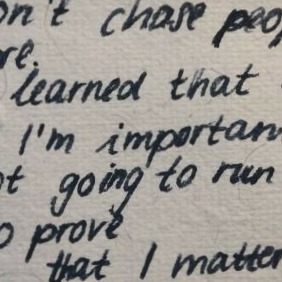 on't chase peop
re.
learned that
I'm importan
t going to run
o prove
that I matter